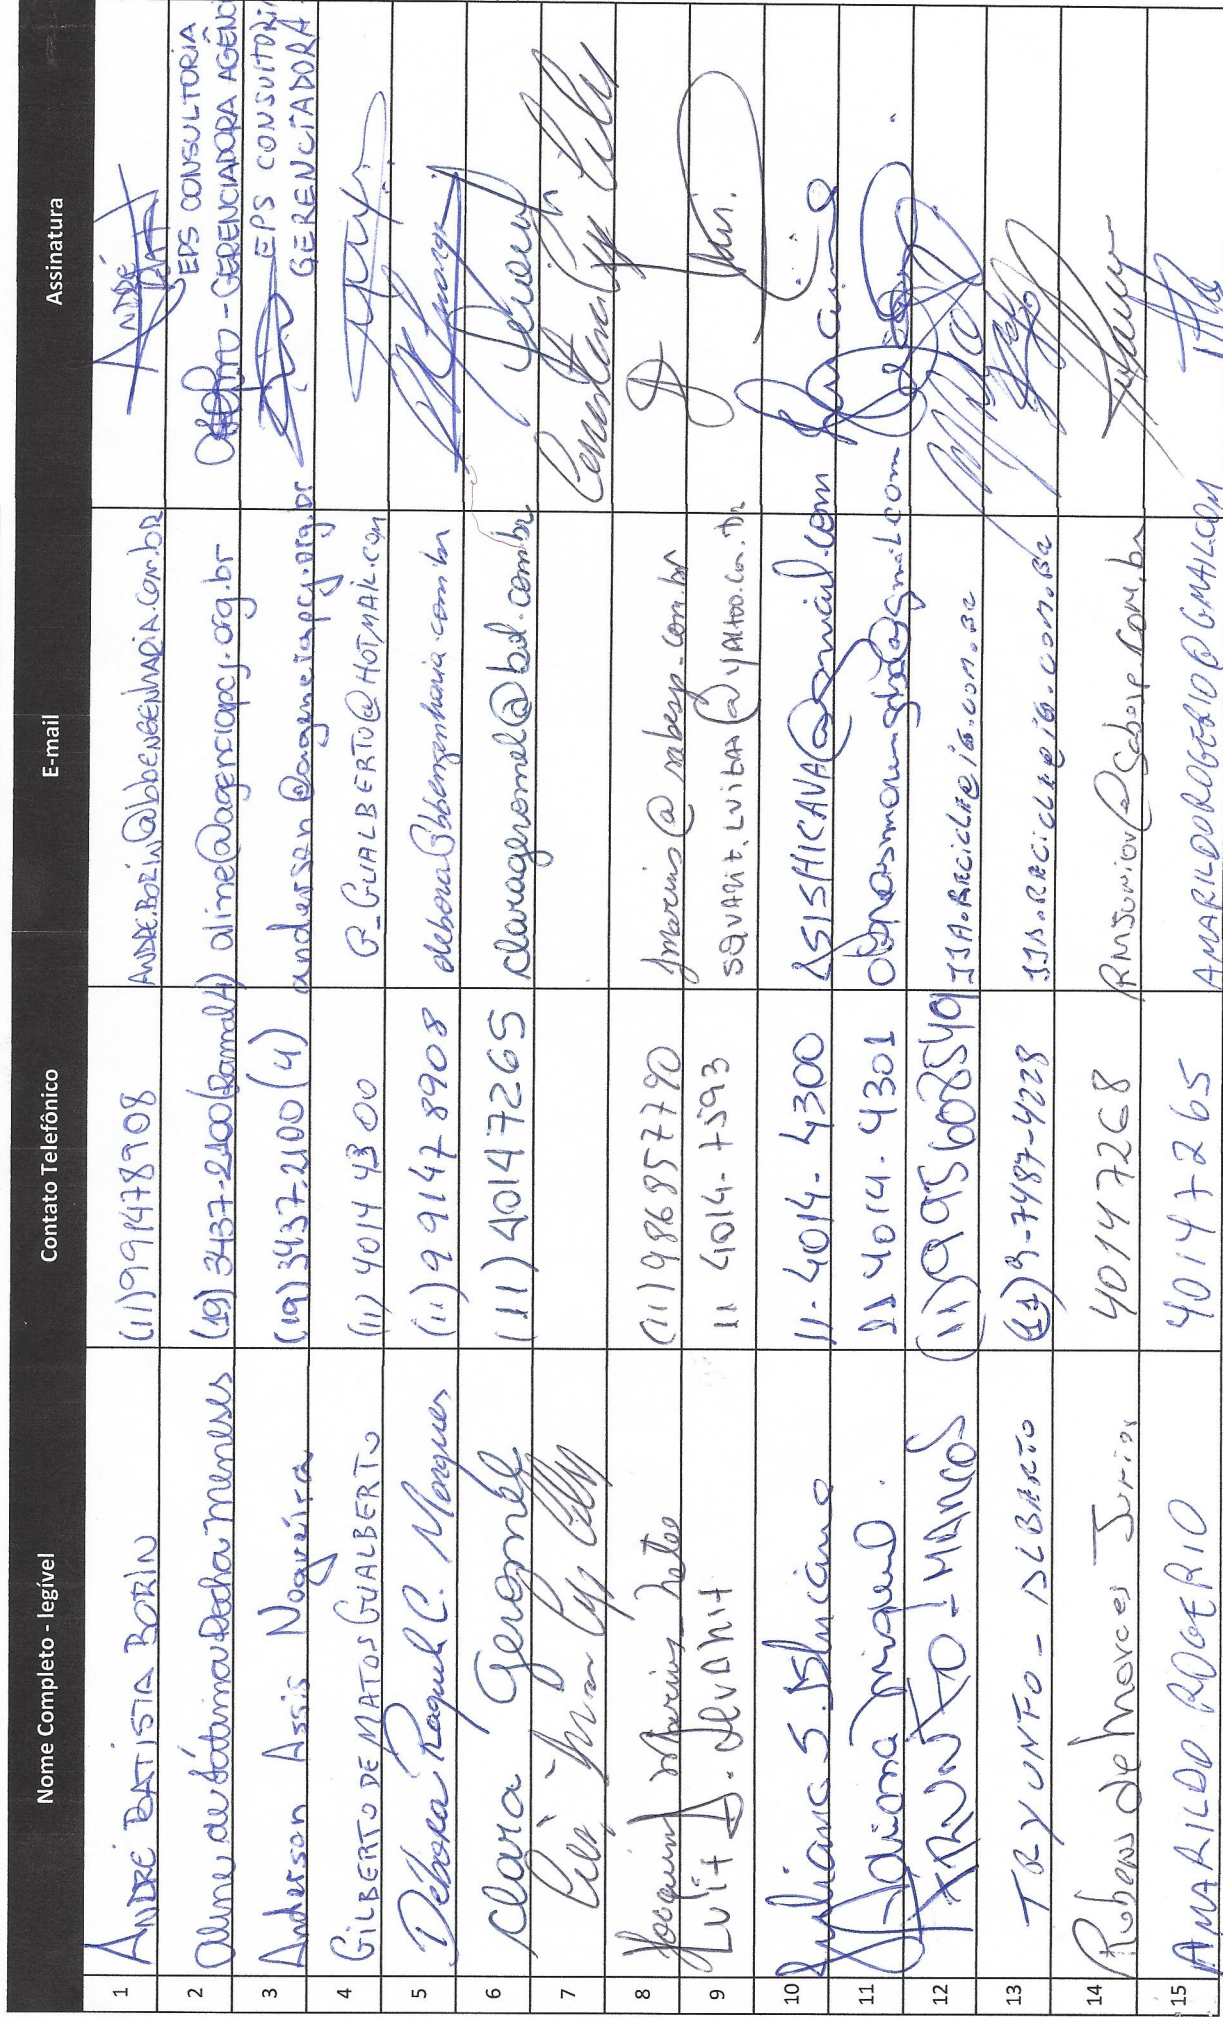 Nome Completo - legível Contato Telefônico E-mail Assinatura
1 ANDRÉ BATISTA BORIN (11)991478908 ANDRE.BORIN@bbENGENHARIA.COM.BR ANDRÉ
2 Aline de Fátima Rocha Meneses (19) 3437-2100 (Ramal 4) aline@agenciapcj.org.br EPS CONSULTORIA - GERENCIADORA AGÊNC
3 Anderson Assis Nogueira (19) 3437-2100 (4) anderson@agenciapcj.org.br EPS CONSULTORI GERENCIADORA
4 GILBERTO DE MATOS GUALBERTO (11) 4014 43 00 G_GUALBERTO@HOTMAIL.COM
5 Débora Raquel C. Marques (11) 9 9147 8908 debora@bbengenharia.com.br
6 Clara Geromel (11) 40147265 clarageromel@bol.com.br
7
8 Joaquim Marins Neto (11) 986857790 jmarins@sabesp.com.br
9 Luiz A. 11 4014-7593
10 Juliana S. 11- 4014-4300 ASISHICAVA@gmail.com
11 Adriana Miguel. 11 4014.4301
12 TRIUNFO - MARCOS (11) 995608540 JJA.RECICLA@IG.COM.BR
13 TRYUNFO - ALBERTO (11) 9-7487-4228 JJA.RECICLA@IG.COM.BR
14 Rubens de Moraes Junior 40147268 RMJunior@Sabesp.com.br
15 AMARILDO ROGÉRIO 4014 7265 AMARILDOROGERIO@GMAIL.COM